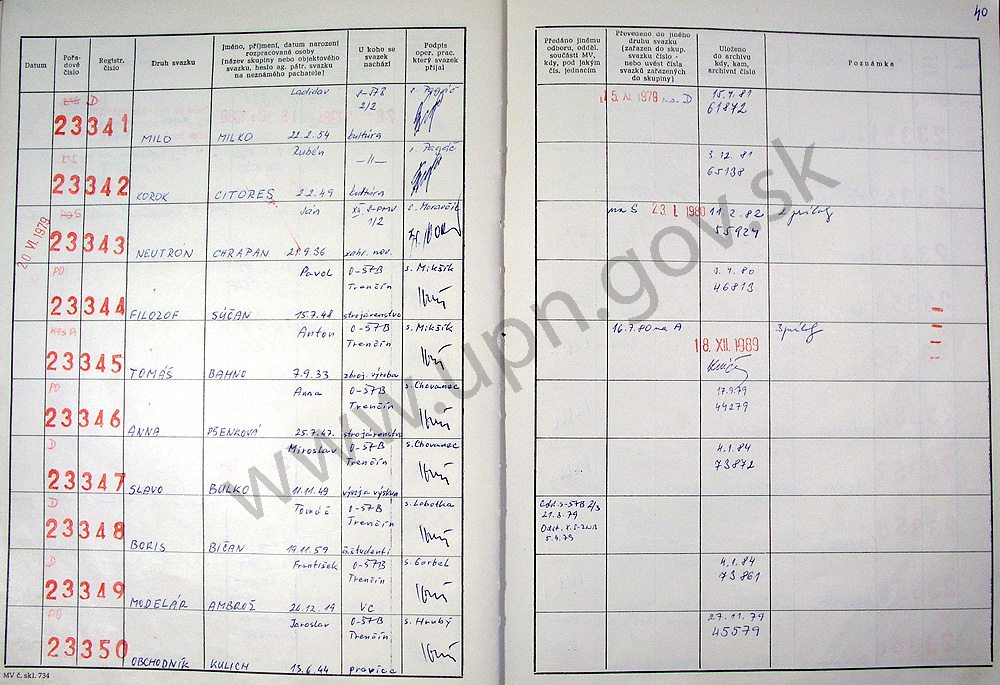 40
Datum
Pořa-
dové
číslo
Registr.
číslo
Druh svazku
Jméno, příjmení, datum narození
rozpracované osoby
(název skupiny nebo objektového
svazku, heslo ag. pátr. svazku
na neznámého pachatele)
U koho se
svazek
nachází
Podpis
oper. prac.
který svazek
přijal
Předáno jinému
odboru, odděl.
součásti MV,
kdy, pod jakým
čís. jednacím
Převedeno do jiného
druhu svazku
(zařazen do skup.
svazku číslo -
nebo uvést čísla
svazků zařazených
do skupiny)
Uloženo
do archivu
kdy, kam,
archivní číslo
Poznámka
20 VI. 1979
D
23341
MILO
Ladislav
MILKO 22.2.54
8-57B
2/2
kultúra
s. Pagáč
15. XI. 1979 na D
15.4.81
61872
23342
KOROK
Rubén
CITORES 2.2.49
-"-
kultúra
s. Pagáč
3.12.81
65138
S
23343
NEUTRÓN
Ján
CHRAPAN 21.9.36
1/2
zahr. nov.
s. Moravčík
na S 23. I. 1980
11.2.82
55924
2 prílohy
PO
23344
FILOZOF
Pavol
SÚČAN 15.7.48
0-57B
Trenčín
strojárenstvo
s. Mikšík
1.4.80
46813
A
23345
TOMÁŠ
Anton
BAHNO 7.9.33
0-57B
Trenčín
zbroj. výroba
s. Mikšík
16.7.80 na A
18. XII. 1989
3 prílohy
PO
23346
ANNA
Anna
PŠENKOVÁ 25.7.47.
0-57B
Trenčín
strojárenstvo
s. Chovanec
17.9.79
44279
D
23347
SLAVO
Miroslav
BULKO 11.11.49
0-57B
Trenčín
s. Chovanec
4.1.84
73872
D
23348
BORIS
Tomáš
BIČAN 17.11.59
0-57B
Trenčín
študenti
s. Lobotka
21.8.79
5.9.79
D
23349
MODELÁR
František
AMBROŠ 26.12.19
0-57B
Trenčín
VC
s. Gorbel
4.1.84
73861
PO
23350
OBCHODNÍK
Jaroslav
KULICH 13.6.44.
0-57B
Trenčín
pravica
s. Hrubý
27.11.79
45579
MV č. skl. 734
www.upn.gov.sk